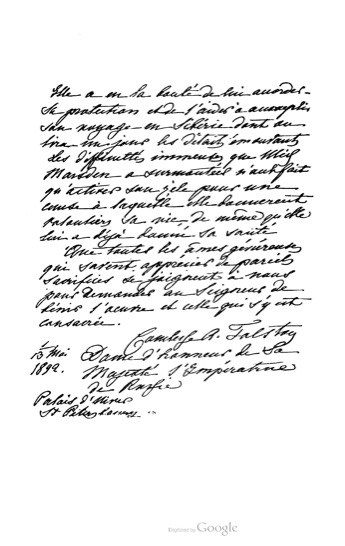 Elle a eu la bonté de lui accorder
sa protection et de l'aider à accomplir
son voyage en Sibérie dont on
lira un jour les détails émouvants
Les difficultés immenses que Miss
Marsden a surmontées n'ont fait
qu'activer son zèle pour une
cause à laquelle elle donnerait
volontiers sa vie, de même qu'elle
lui a déjà donné sa santé
Que toutes les âmes généreuses
qui savent apprécier de pareils
sacrifices se joignent à nous
pour demander au Seigneur de
bénir l'œuvre et celle qui s'y est
consacrée.
Comtesse A. Tolstoy
Mai Dame d'honneur de Sa
1892. Majesté l'Impératrice
de Russie
Palais d'Hiver
St Petersbourg
Digitized by Google